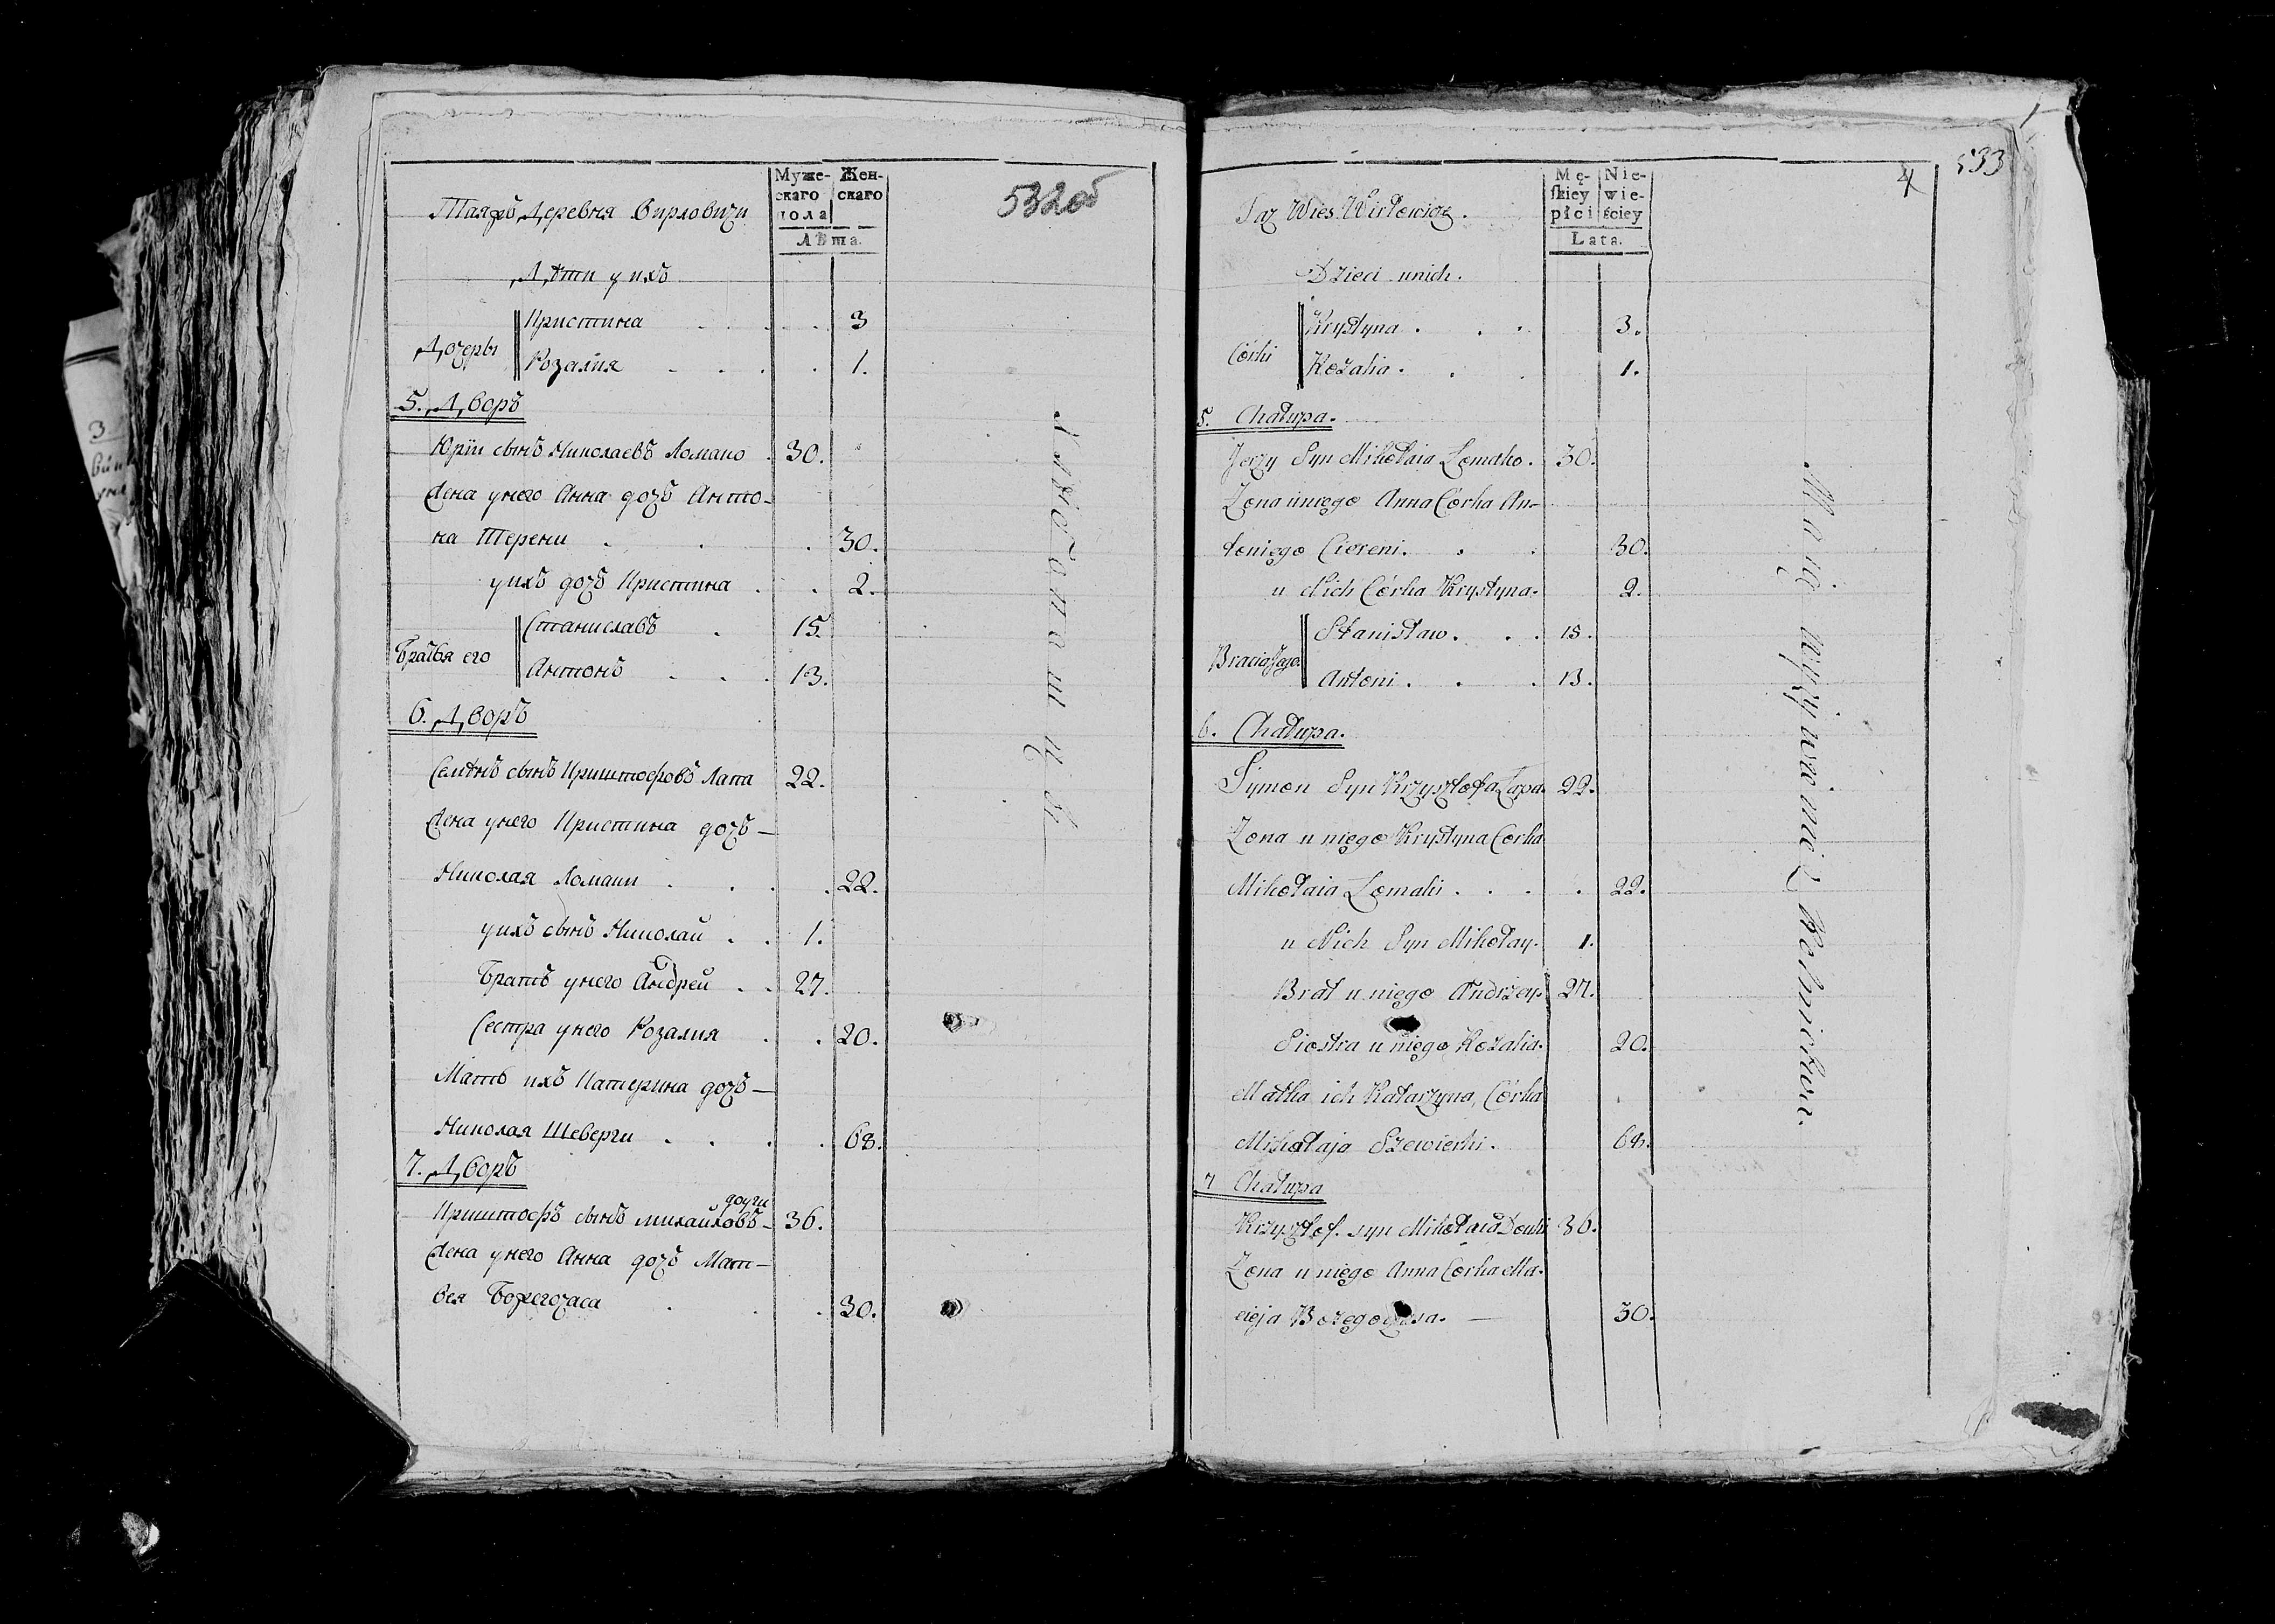 Муже-
скаго
пола
Жен-
скаго
Лѣта.
532об
Таяжъ Деревня Вирловичи
Дѣти у ихъ
Дочеры
Кристина . . . . 3
Розалия . . . . 1.
5. Дворъ
Юрiи сынъ Николаевъ Ломако . 30.
Жена унего Анна дочь Анто-
на Терени . . . 30.
уихъ дочь Кристина . . 2.
Братья его
Станиславъ . 15.
Антонъ . . . 13.
6. Дворъ
Семѣнъ сынъ Криштофовъ Лапа 22.
Жена унего Кристина дочь-
Николая Ломаки . . . . 22.
уихъ сынъ Николай . . 1.
Братъ унего Андрей . . 27.
Сестра унего Розалия . . 20.
Мать ихъ Катерина дочь-
Николая Шеверги . . . . 68.
7. Дворъ
доуги
Криштофъ сынъ михайловъ- 36.
Жена унего Анна дочь Мат-
вея Божегочаса . . . 30.
533
4
Mę-
skiey
płci
Nie-
wie-
ściey
Lata.
Taż Wieś Wirłowicz.
Dzieci unich.
Córki
Krystyna . . . 3.
Rozalia . . . 1.
5. Chałupa.
Jerzy Syn Mikołaia Łomako. 30.
Żona uniego Anna Córka An-
toniego Ciereni. . . 30.
u Nich Córka Krystyna. 2.
Bracia Jego
Stanisław. . . 15.
Antoni . . . 13.
6. Chałupa.
Symon Syn Krzysztofa Łapa. 22.
Żona u niego Krystyna Corka
Mikołaia Łomaki . . . . 22.
u Nich Syn Mikołay. 1.
Brat u niego Andrzey. 27.
Siostra u niego Rozalia. 20.
Matka ich Katarzyna, Córka
Mikołaja Szewierki. 68.
7 Chałupa
Krzysztof. syn Mikołaia Douhi 36.
Żona u niego Anna Corka Ma-
cieja Bożegoczasa. — 30.
Maią wyżywienie z Rolnictwa.